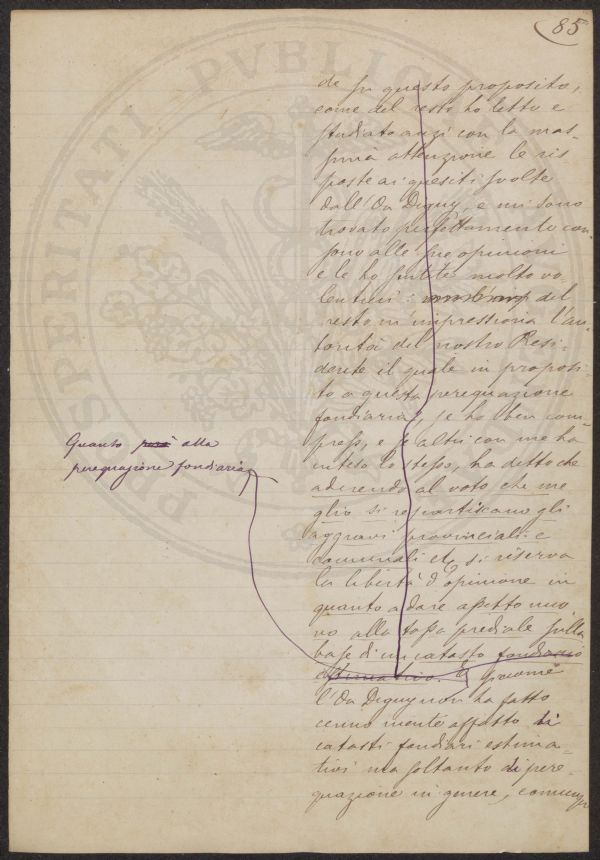 85
de su questo proposito,
come del resto ho letto e
studiato anzi con la mas-
sima attenzione le ris
poste ai quesiti svolte
dall'On Digny, e mi sono
trovato perfettamente con-
sono alle sue opinioni
e le ho sentite molto vo
lentieri: del
resto m'impressiona l'au-
torità del nostro Resi-
dente il quale in proposi-
to a questa perequazione
fondiaria, se ho ben com
preso, e se altri con me ha
inteso lo stesso, ha detto che
aderendo al voto che me
glio si respartiscano gli
aggravi provinciali e
comunali etc si riserva
la libertà d'opinione in
quanto a dare assetto nuo
vo alla tassa prediale sulla
base di un catasto fondiario
estimativo. E siccome
l'On Digny non ha fatto
cenno mente affatto di
catasti fondiari estima-
tivi ma soltanto di pere-
quazione in genere,
Quanto però alla
perequazione fondiaria,
PROSPERITATI PVBLICAE